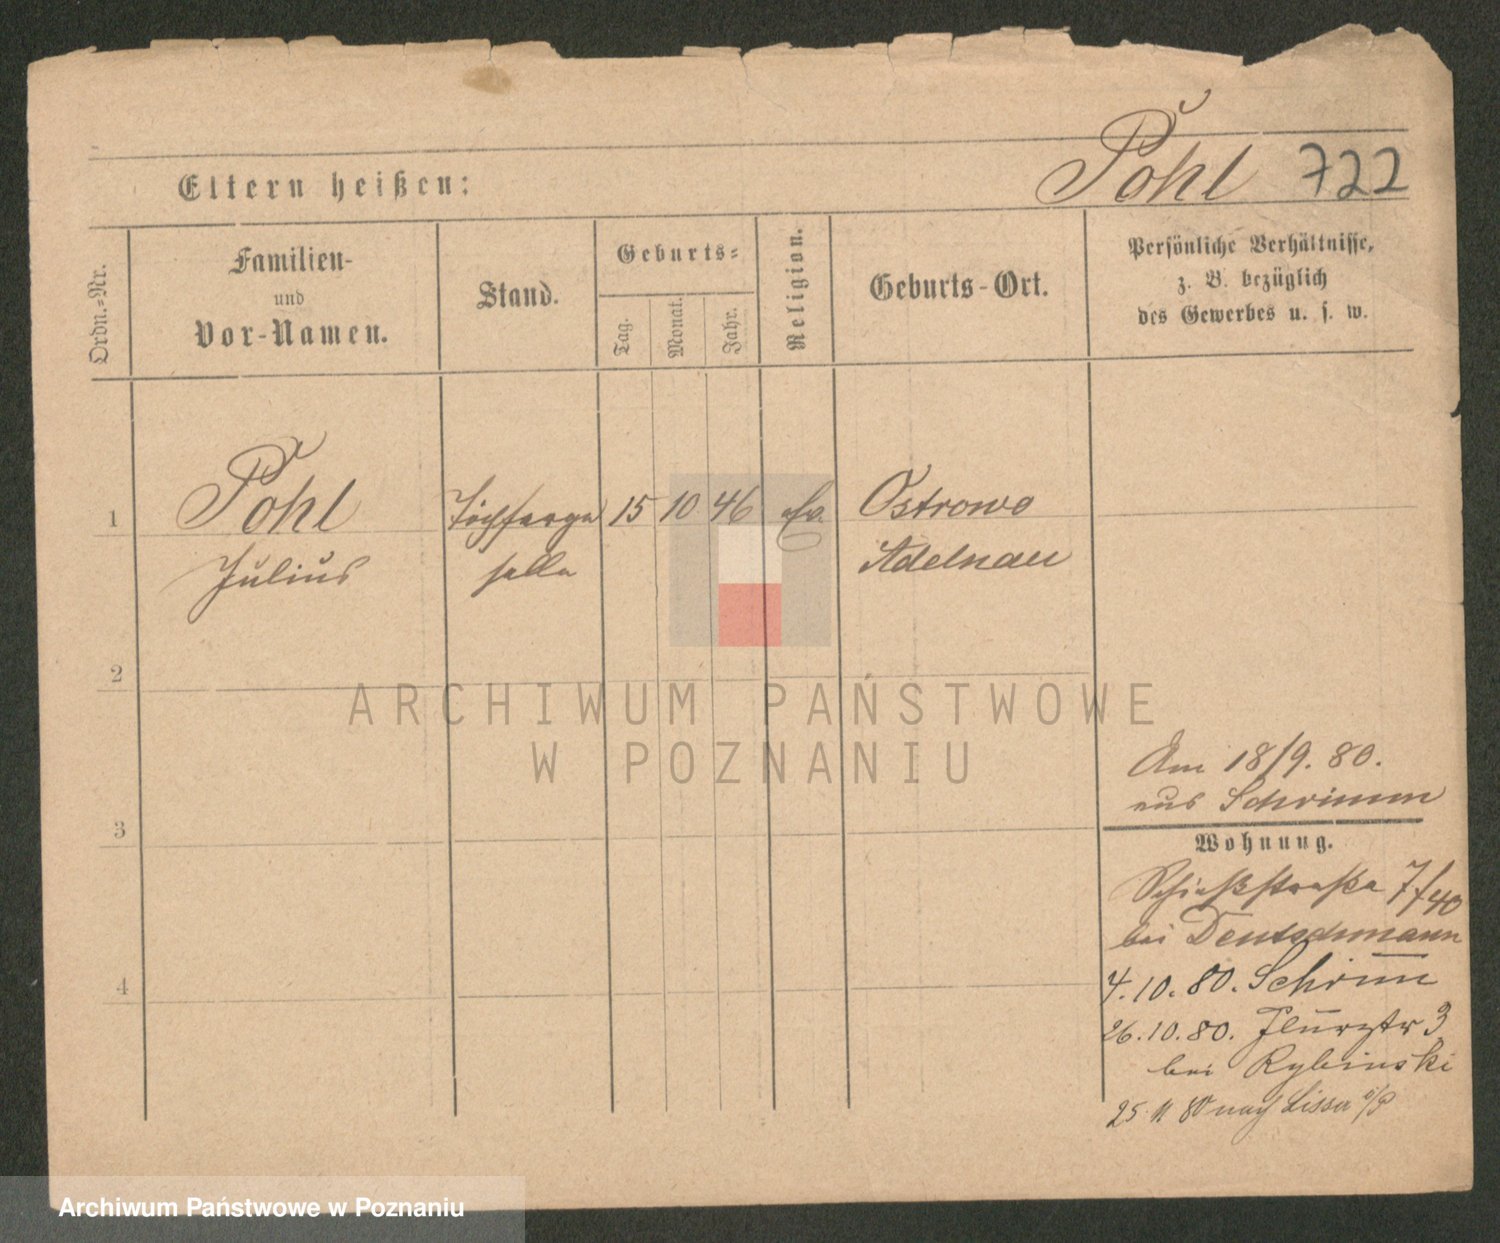 Pohl 722
Eltern heißen:
Ordn.-Nr.
Familien-
und
Vor-Namen.
Stand.
Geburts-
Tag.
Monat.
Jahr.
Religion.
Geburts-Ort.
Persönliche Verhältnisse,
z. B. bezüglich
des Gewerbes u. s. w.
1
Pohl
Julius
Töpferge
selle
15 10 46
ev.
Ostrowo
Adelnau
2
3
4
Am 18/9. 80.
aus Schrimm
Wohnung.
Schießstraße 7/40
bei Deutschmann
4.10.80. Schrim̄
26.10.80. Flurstr 3
bei Rybinski
25 11 80 nach Lissa i/P
ARCHIWUM PAŃSTWOWE
W POZNANIU
Archiwum Państwowe w Poznaniu